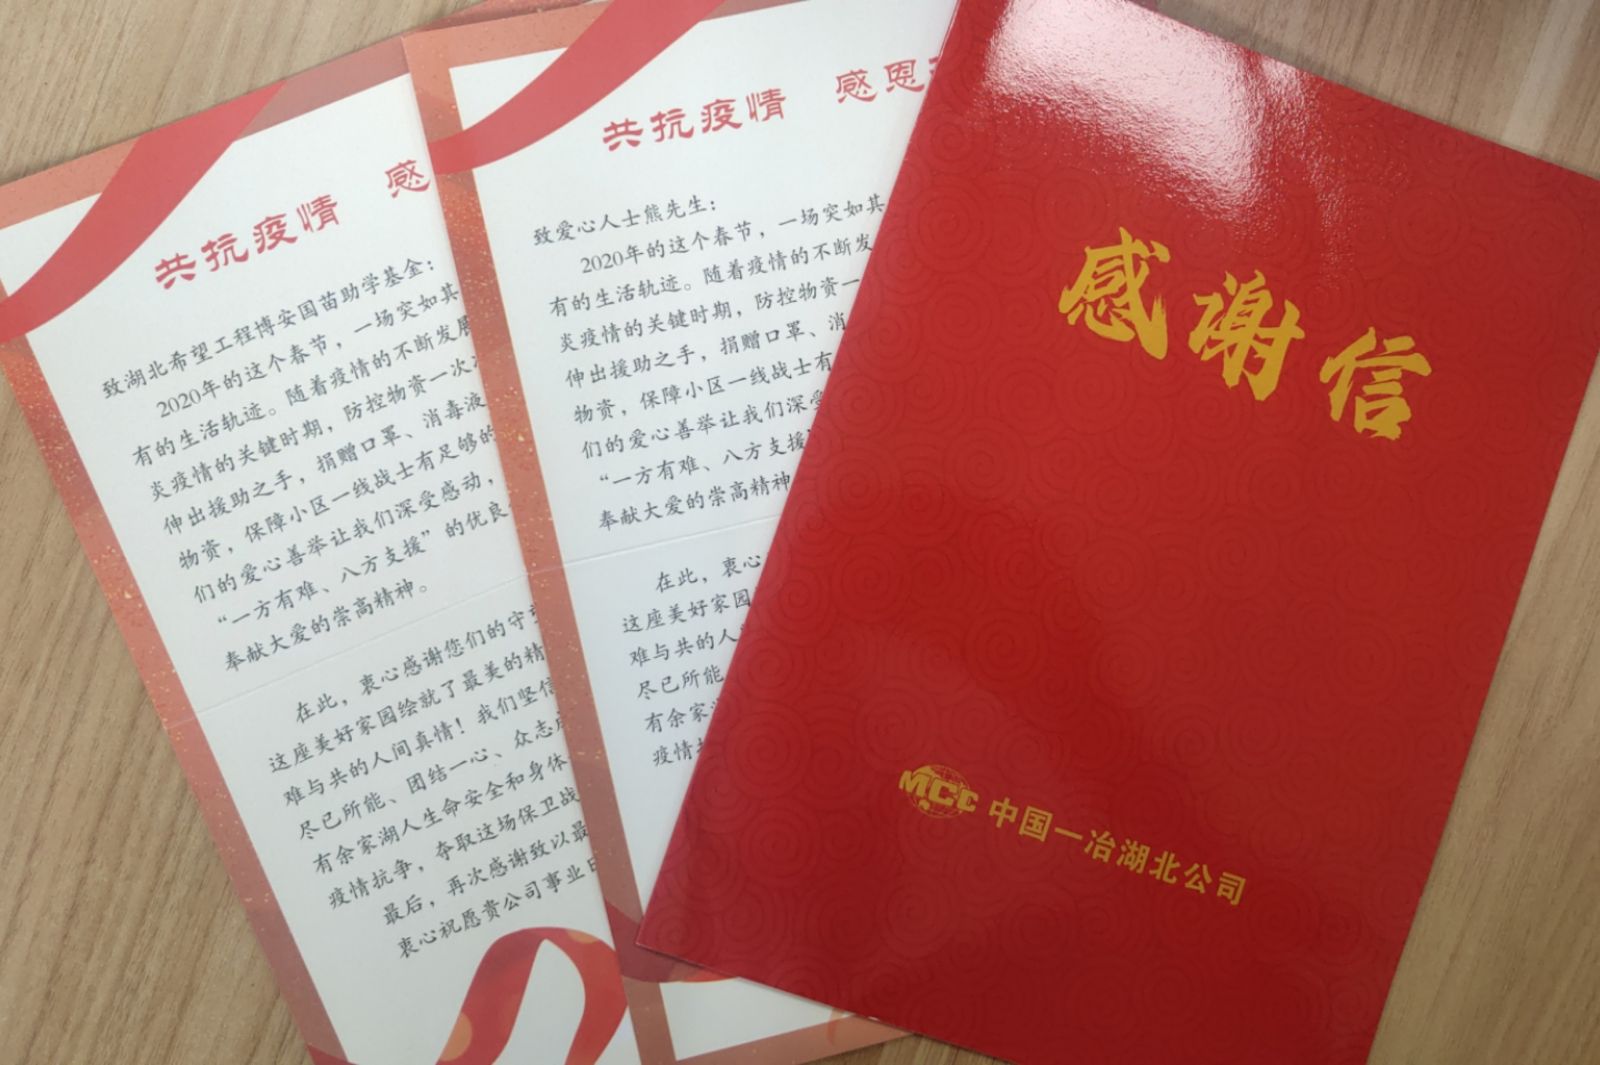 共抗疫情 感
致湖北希望工程博安国苗助学基金：
2020年的这个春节，一场突如其
有的生活轨迹。随着疫情的不断发展
炎疫情的关键时期，防控物资一次
伸出援助之手，捐赠口罩、消毒液
物资，保障小区一线战士有足够的
们的爱心善举让我们深受感动，
“一方有难、八方支援”的优良
奉献大爱的崇高精神。
在此，衷心感谢您们的守
这座美好家园绘就了最美的精
难与共的人间真情！我们坚信
尽已所能、团结一心、众志
有余家湖人生命安全和身体
疫情抗争，夺取这场保卫战
最后，再次感谢致以最
衷心祝愿贵公司事业日
共抗疫情 感恩
致爱心人士熊先生：
2020年的这个春节，一场突如其
有的生活轨迹。随着疫情的不断发
炎疫情的关键时期，防控物资一
伸出援助之手，捐赠口罩、消
物资，保障小区一线战士有
们的爱心善举让我们深受
“一方有难、八方支援
奉献大爱的崇高精神
在此，衷心
这座美好家园
难与共的人
尽已所能
有余家
疫情
感谢信
MCC 中国一冶湖北公司